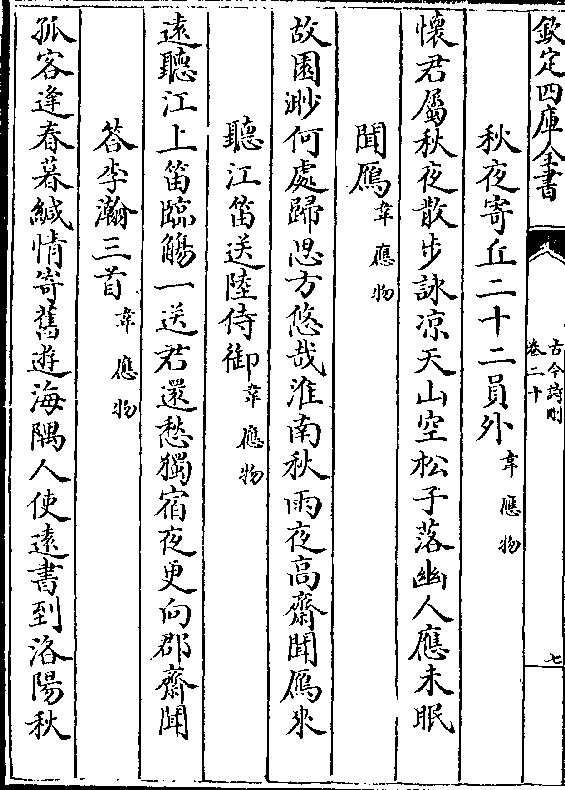 欽定四庫全書
古今詩刪
卷二十
七
秋夜寄丘二十二員外韋應物
懷君屬秋夜散步詠凉天山空松子落幽人應未眠
聞鴈韋應物
故園渺何處歸思方悠哉淮南秋雨夜高齋聞鴈來
聽江笛送陸侍御韋應物
遠聽江上笛臨觴一送君還愁獨宿夜更向郡齋聞
答李瀚三首韋應物
孤客逢春暮緘情寄舊遊海隅人使遠書到洛陽秋